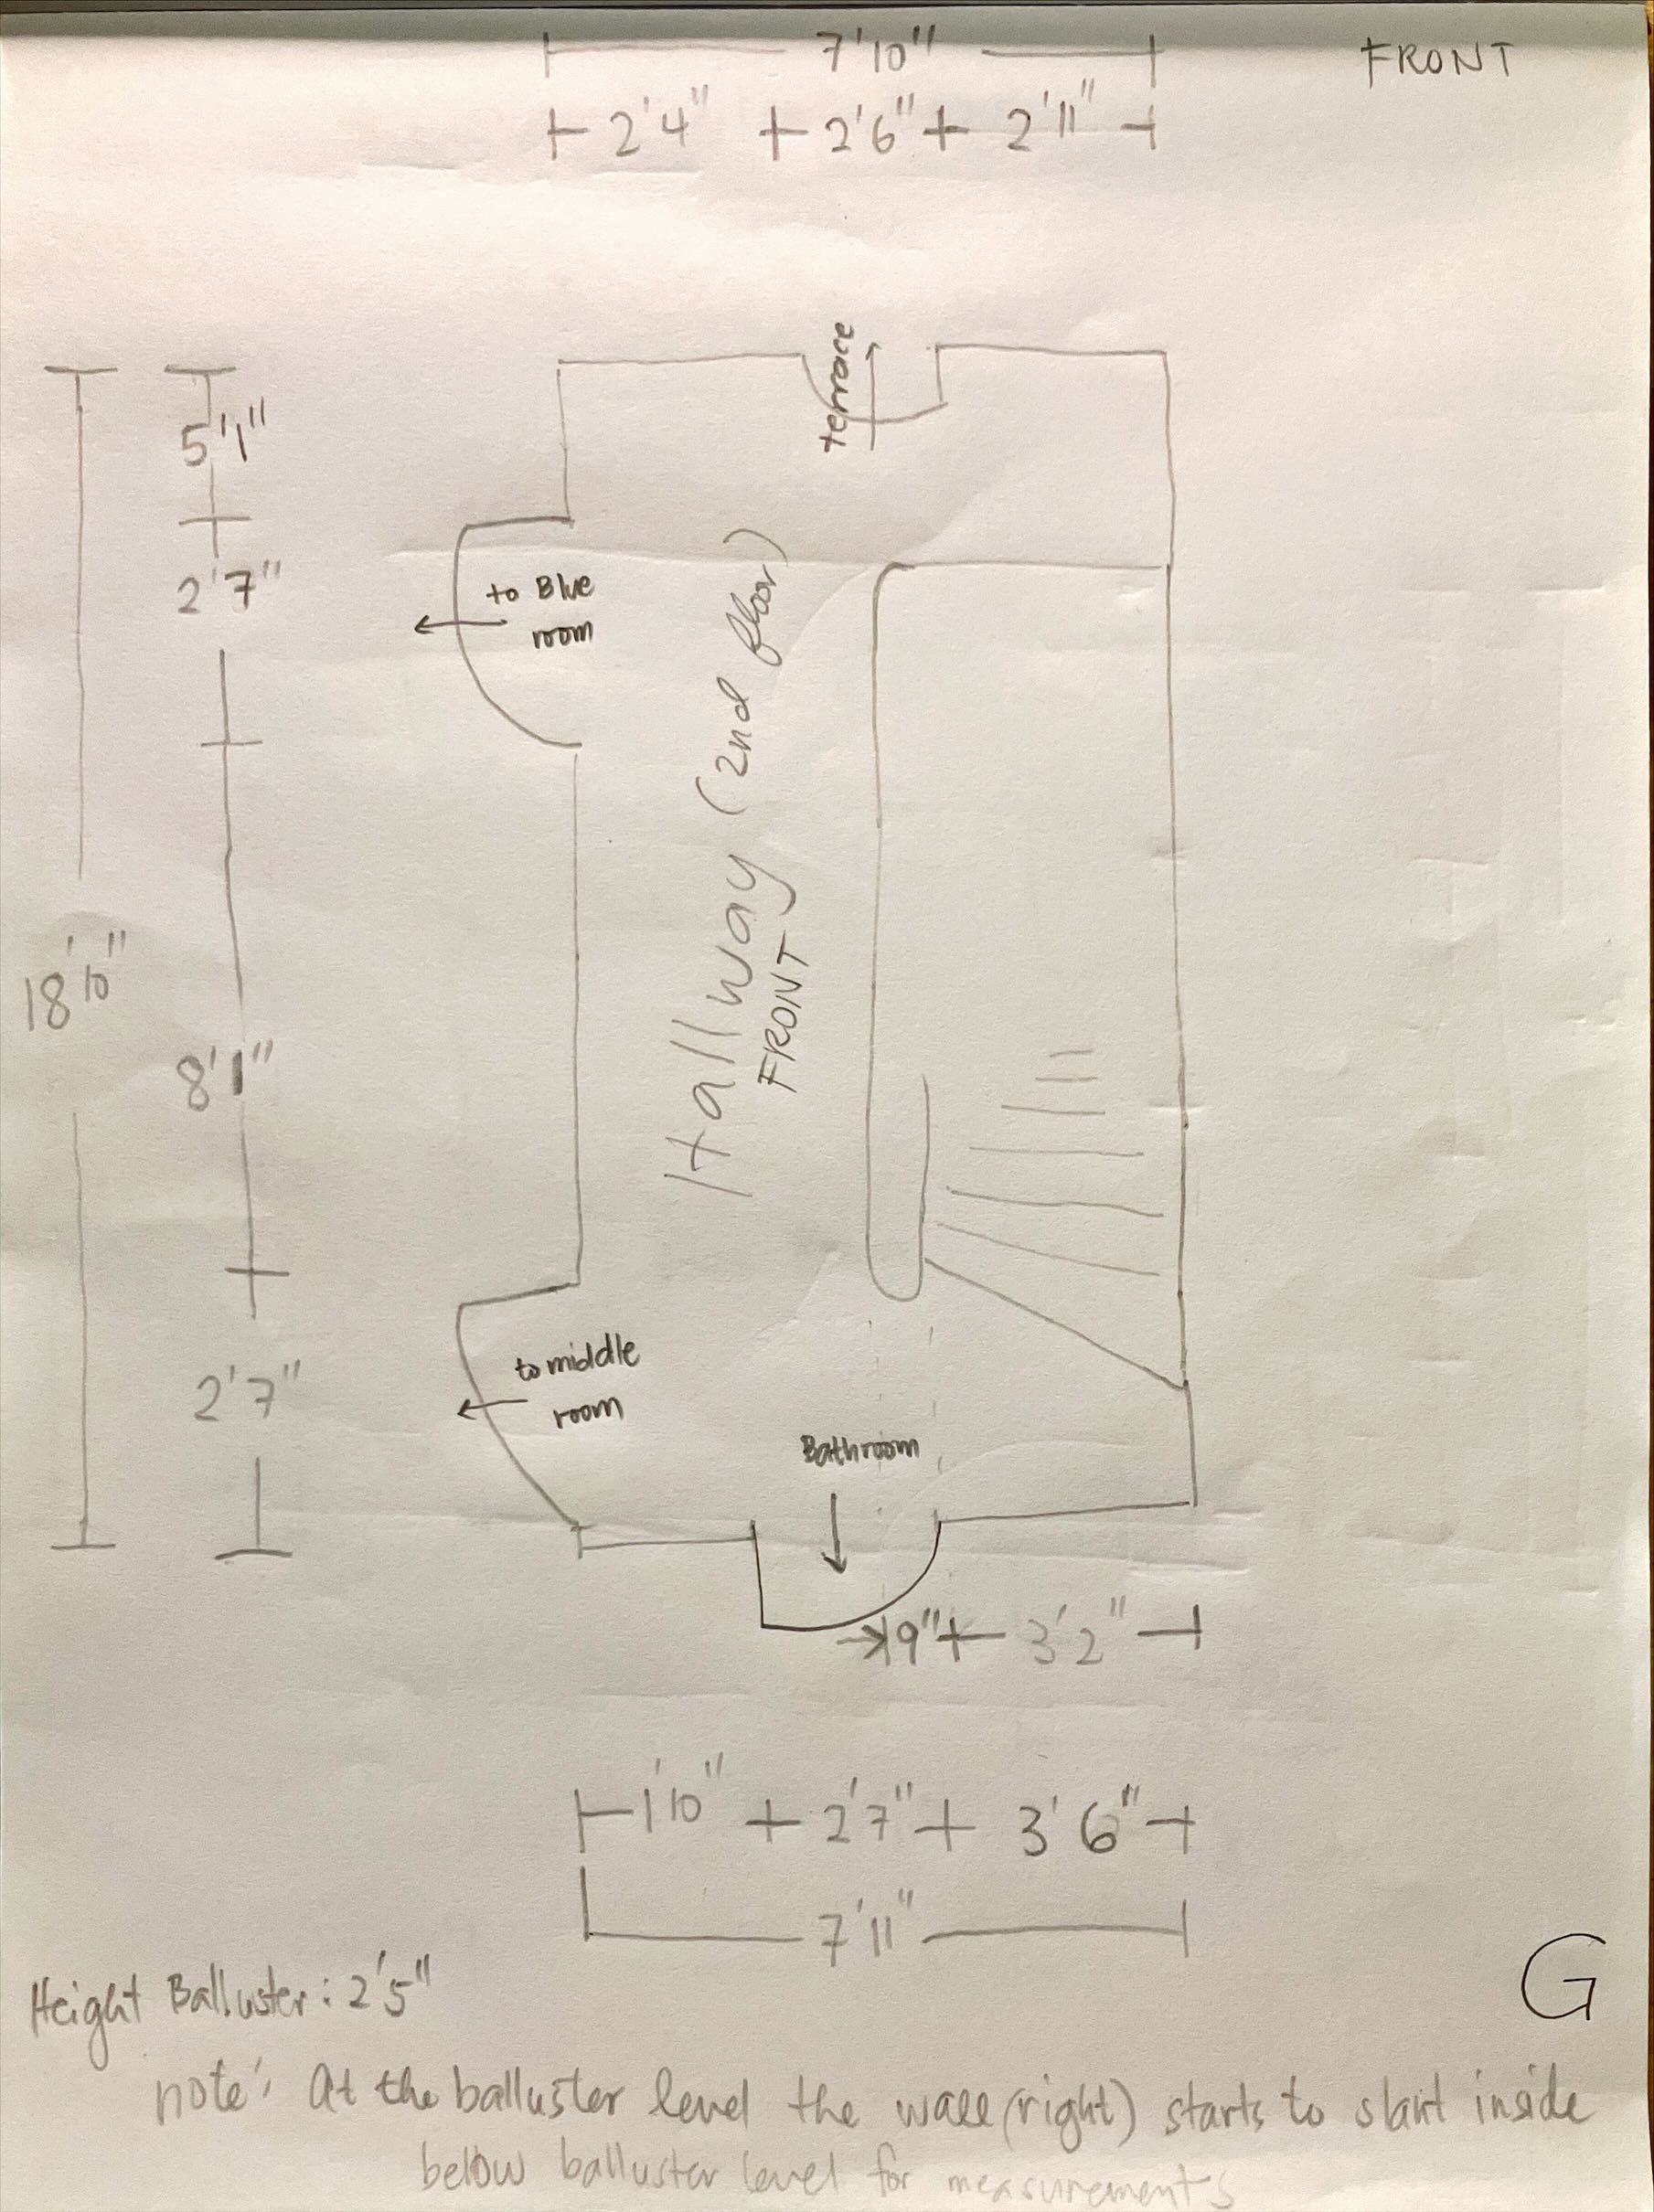 7'10"
FRONT
2'4" 2'6" 2'11"
terrace
5'1"
2'7"
to Blue
room
Hallway (2nd floor)
FRONT
18'10"
8'1"
to middle
room
2'7"
Bathroom
9" 3'2"
1'10" 2'7" 3'6"
7'11"
Height Balluster: 2'5"
G
note: At the balluster level the wall (right) starts to slant inside
below balluster level for measurements